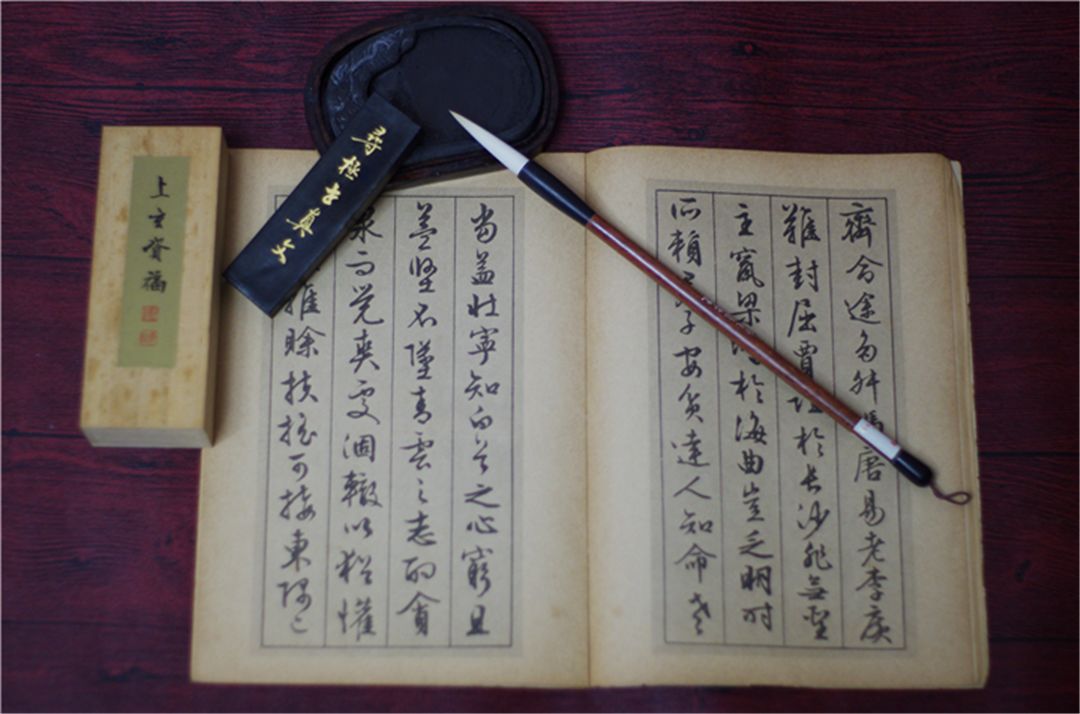 齊命途多舛馮唐易老李廣
難封屈賈誼於長沙非無聖
主竄梁鴻於海曲豈乏明時
所賴君子安貧達人知命老
當益壯寧知白首之心窮且
益堅不墜青雲之志酌貪
泉而覺爽處涸轍以猶懽
雖賒扶搖可接東隅已
尋 真文
上 福